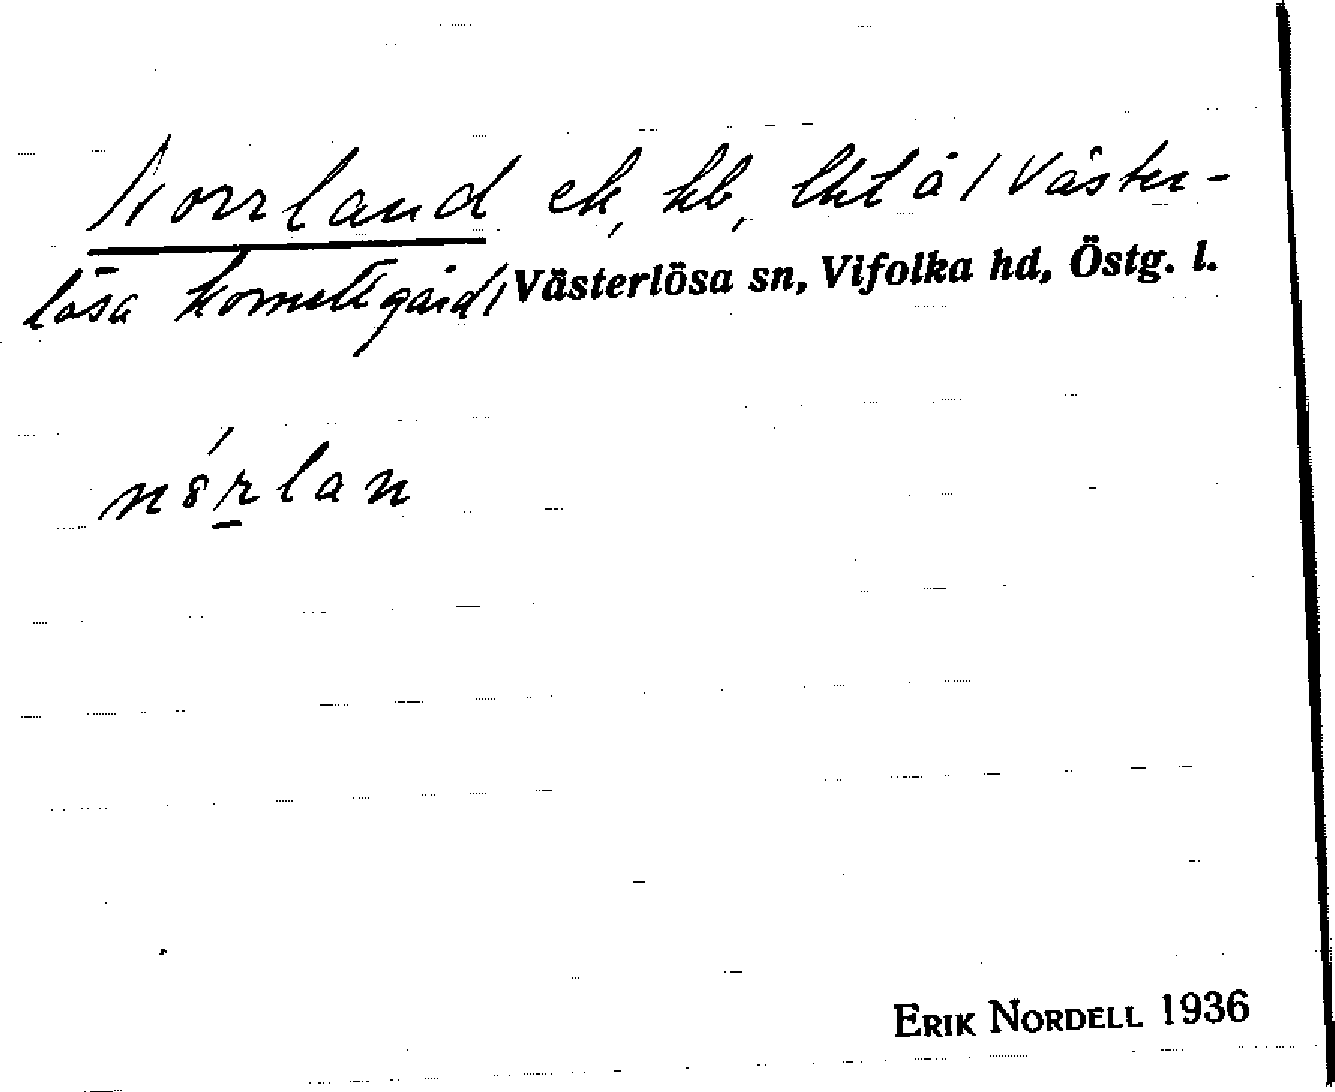 Norrland ek, kb, lht å / Väster-
lösa Kornettgård / Västerlösa sn, Vifolka hd, Östg. l.
nórlan
ERIK NORDELL 1936